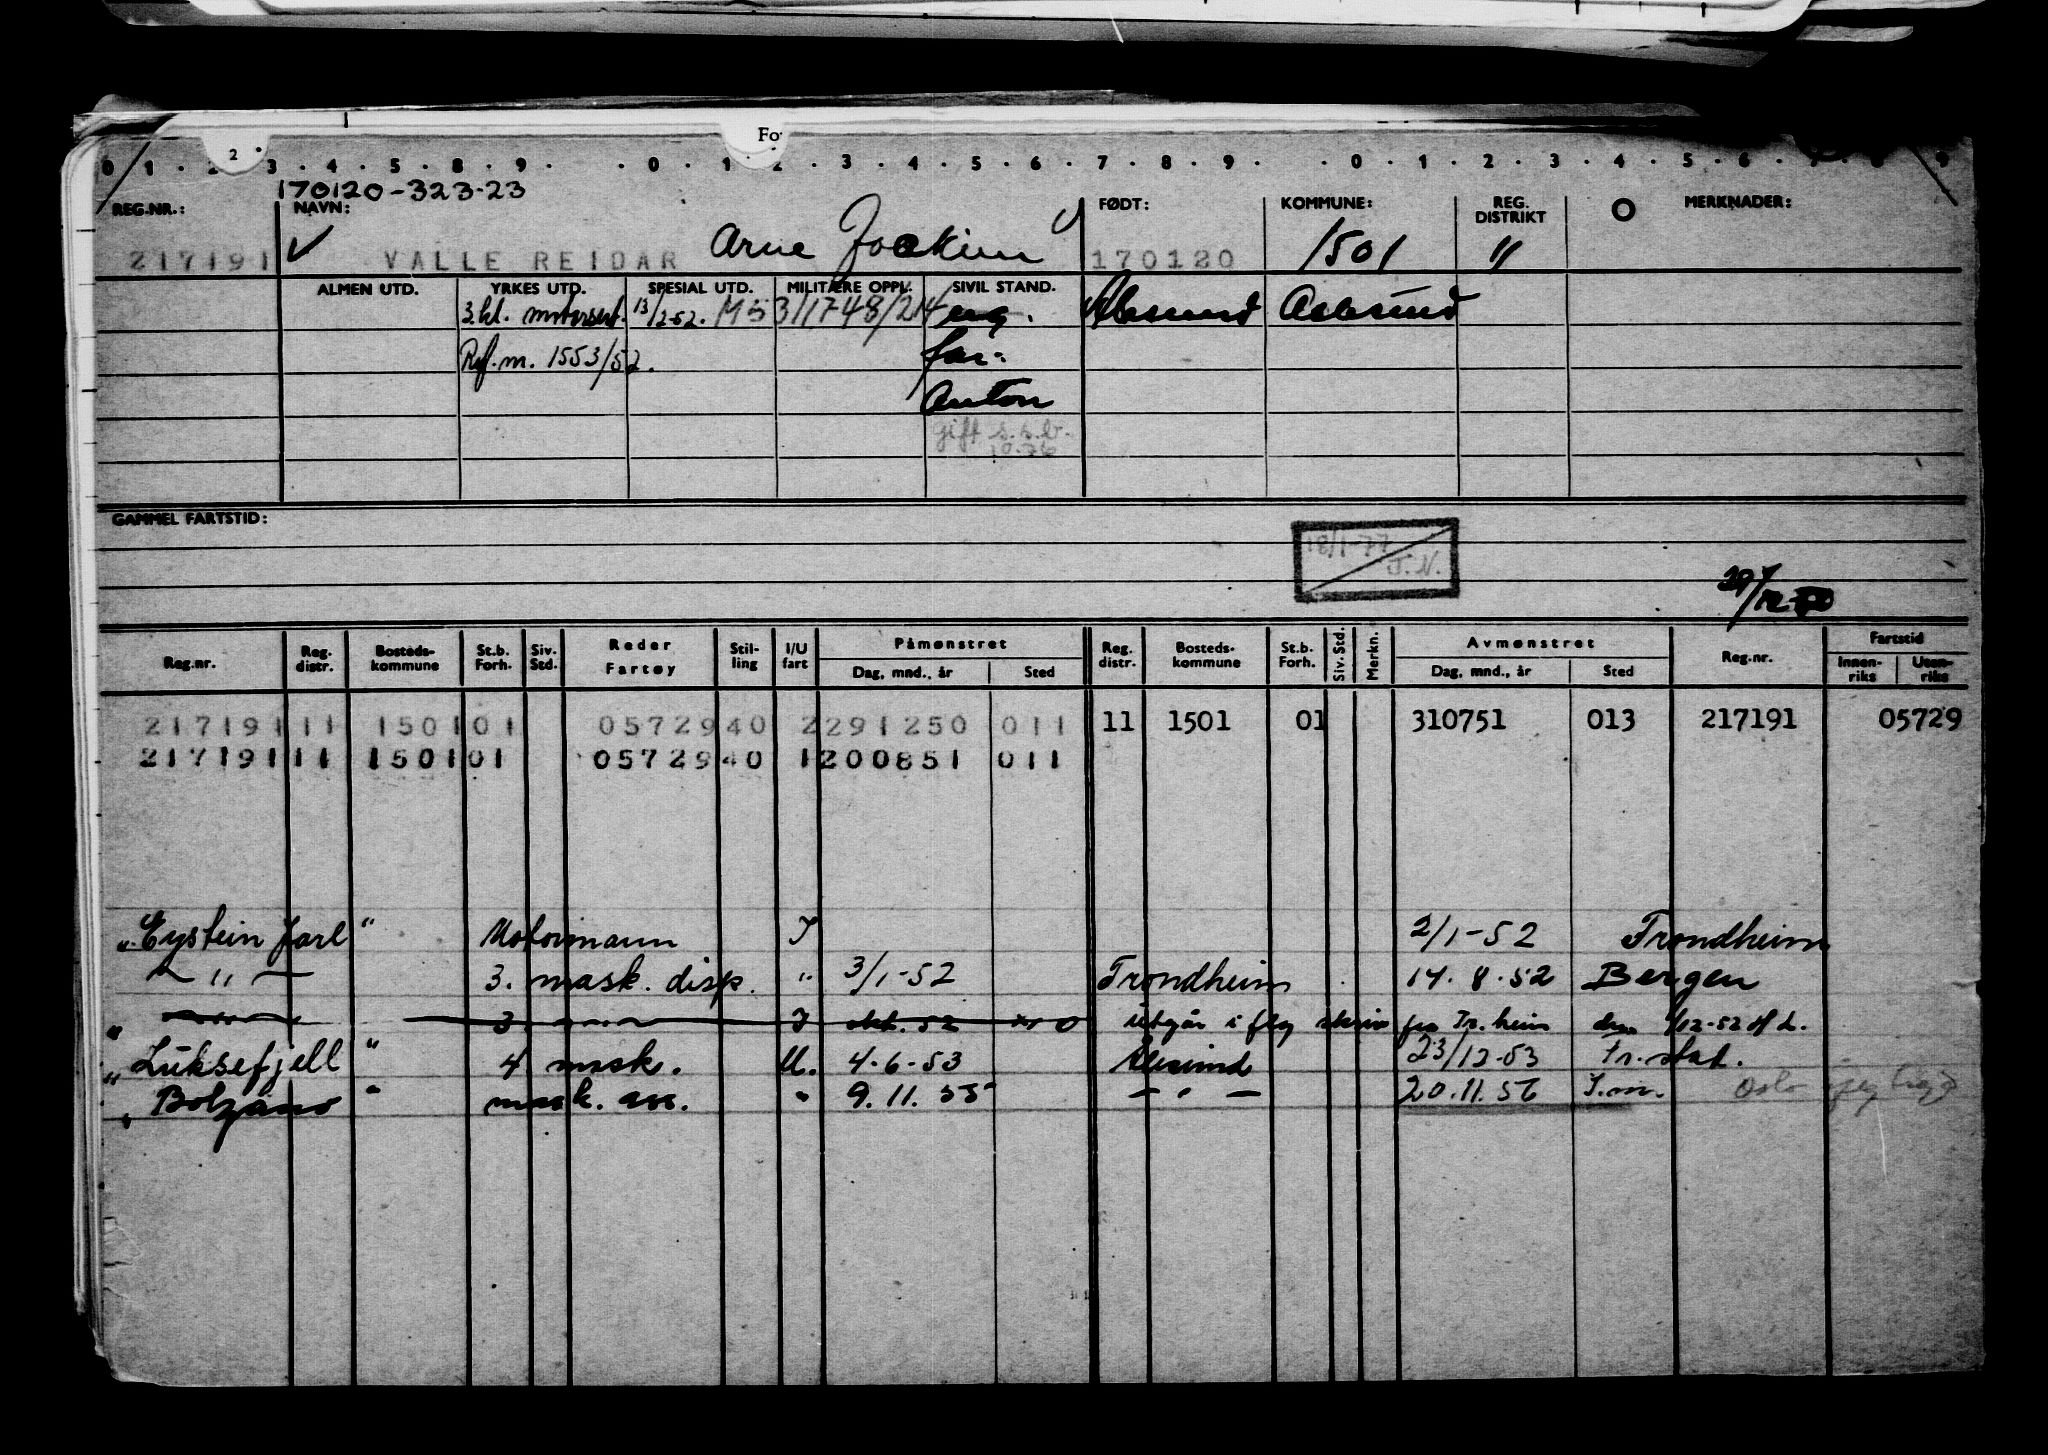 2
Fo
0 1 . 2 3 . 4 . 5 . 8 . 9 . . 0 . 1 . 2 . 3 . 4 . 5 . 6 . 7 . 8 . 9 . . 0 . 1 . 2 . 3 . 4 . 5 . 6 . 7 . 8 . 9
170120-323-23
REG.NR.: NAVN: FØDT: KOMMUNE: REG. DISTRIKT O MERKNADER:
217191 ✓ VALLE REIDAR Arne Joakim 170120 1501 11
ALMEN UTD. YRKES UTD. SPESIAL UTD. MILITÆRE OPPL. SIVIL STAND.
3.kl. motorsert. 13/2-52. M 531/1748/214 ug. Ålesund Aalesund
Ref. m. 1553/52. far:
Anton
gift s.s.b.
10.76
GAMMEL FARTSTID:
18/1-77
T.N.
29/12-50
Reg.nr. Reg. distr. Bosteds- kommune St.b. Forh. Siv. Std. Reder Fartøy Stil- ling I/U fart Påmønstret Reg. distr. Bosteds- kommune St.b. Forh. Siv. Std. Merkn. Avmønstret Reg.nr. Fartstid
Dag, mnd., år Sted Dag, mnd., år Sted Innen- riks Uten- riks
217191 11 1501 01 05729 40 2 291250 011 11 1501 01 310751 013 217191 05729
217191 11 1501 01 05729 40 1 200851 011
"Eystein Jarl" Motormann I 2/1-52 Trondheim
— " — 3. mask. disp. " 3/1-52 Trondheim 14.8.52 Bergen
" 3. I okt. 52 utgår i flg skriv fra Tr.heim
"Luksefjell" 4 mask. U. 4-6-53 Ålesund 23/12-53 Fr.stad.
"Bolzano" mask. ass. " 9.11.55 — " — 20.11.56 S.m. Oslo